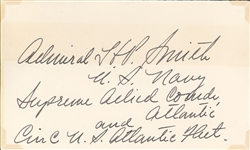 Admiral H.P. Smith
U.S. Navy
Supreme Allied Comdr
Atlantic
and
CinC U.S. Atlantic Fleet.